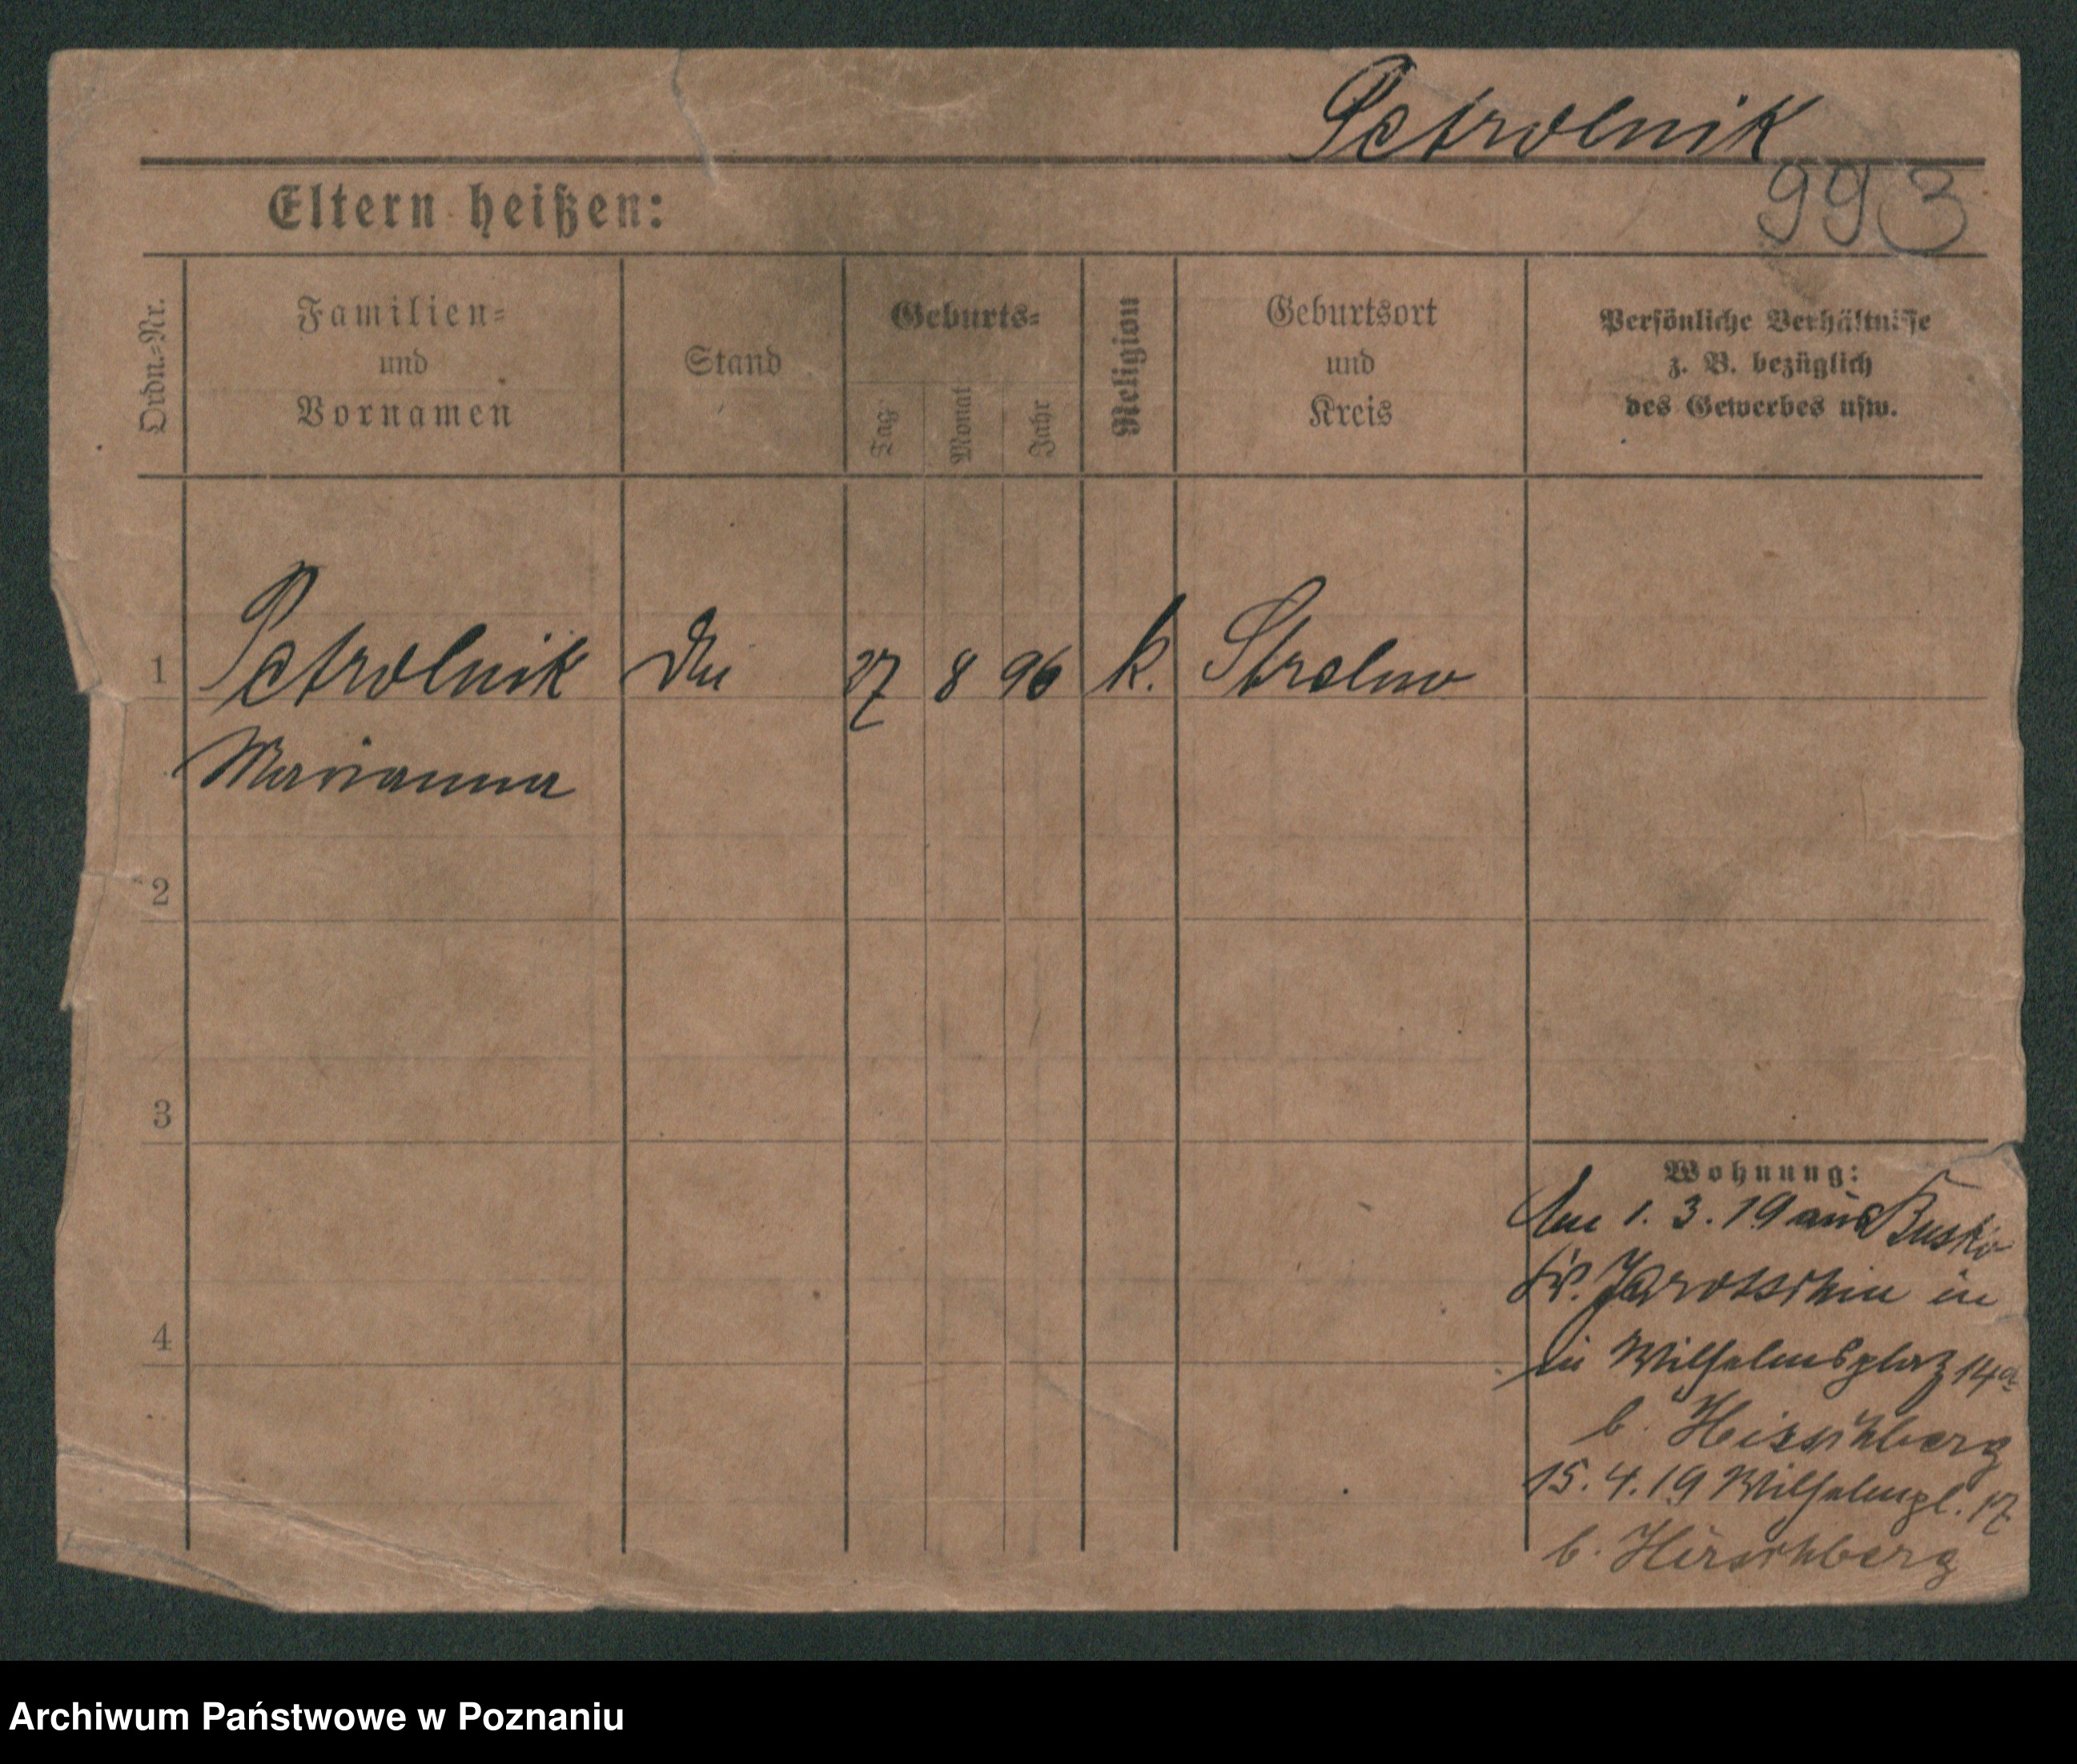 Petrolnik
993
Eltern heißen:
Ordn.-Nr.
Familien-
und
Vornamen
Stand
Geburts-
Tag
Monat
Jahr
Religion
Geburtsort
und
Kreis
Persönliche Verhältnisse
z. B. bezüglich
des Gewerbes usw.
1 Petrolnik 27 8 96 k. Strelno
Marianna
2
3
4
Wohnung:
1. 3. 19 aus Rusko
Kr. Jarotschin in
in Wilhelmsplatz 14a
b. Hirschberg
15. 4. 19 Wilhelmpl. 17
b. Hirschberg
Archiwum Państwowe w Poznaniu